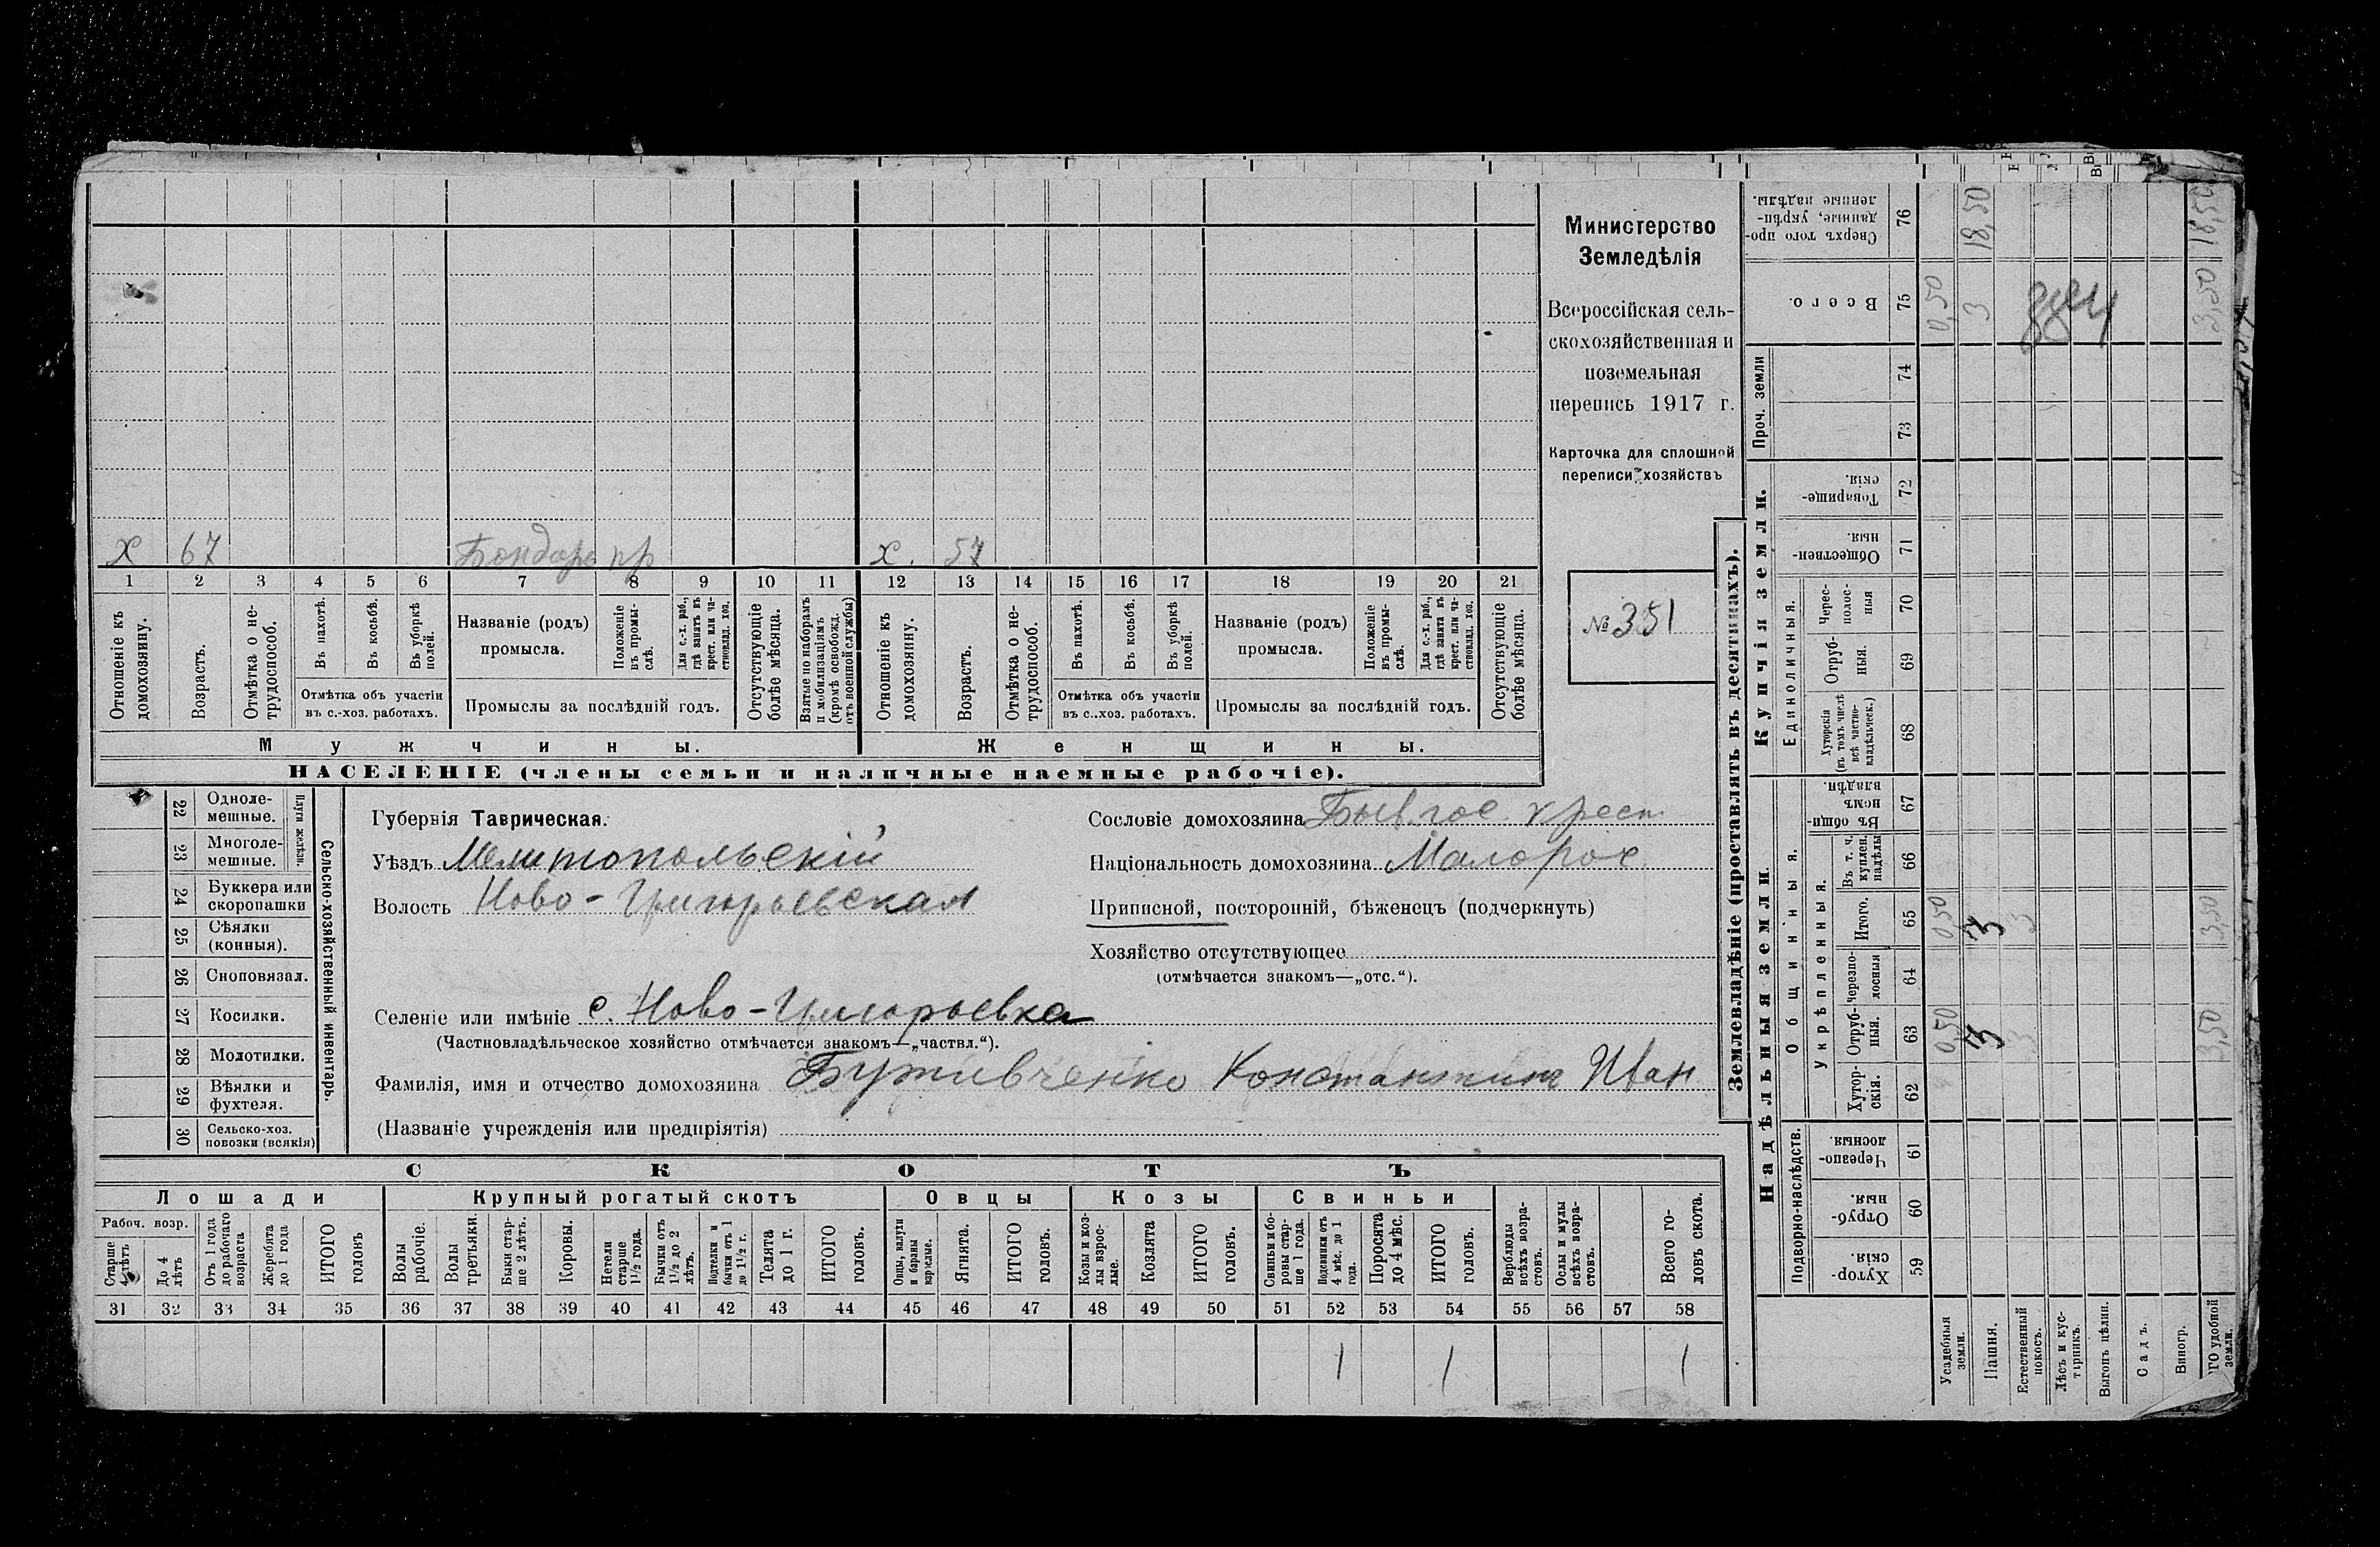 Министерство
Земледѣлія
Всероссійская сель-
скохозяйственная и
поземельная
перепись 1917 г.
Карточка для сплошной
переписи хозяйствъ
№ 351
Х 67 Бондарь пр х. 57
1 2 3 4 5 6 7 8 9 10 11 12 13 14 15 16 17 18 19 20 21
Отношеніе къ домохозяину.
Возрастъ.
Отмѣтка о не-трудоспособ.
Въ пахотѣ.
Въ косьбѣ.
Въ уборкѣ полей.
Отмѣтка объ участіи
въ с.-хоз. работахъ.
Названіе (родъ)
промысла.
Положеніе въ промы-слѣ.
Для с.-х. раб., гдѣ занятъ въ крест. или ча-стновлад. хоз.
Промыслы за послѣдній годъ.
Отсутствующіе болѣе мѣсяца.
Взятые по наборамъ и мобилизаціямъ (кромѣ освобожд. отъ военной службы)
Отношеніе къ домохозяину.
Возрастъ.
Отмѣтка о не-трудоспособ.
Въ пахотѣ.
Въ косьбѣ.
Въ уборкѣ полей.
Отмѣтка объ участіи
въ с.-хоз. работахъ.
Названіе (родъ)
промысла.
Положеніе въ промы-слѣ.
Для с.-х. раб., гдѣ занята въ крест. или ча-стновлад. хоз.
Промыслы за послѣдній годъ.
Отсутствующіе болѣе мѣсяца.
Мужчины. Женщины.
НАСЕЛЕНІЕ (члены семьи и наличные наемные рабочіе).
22 Одноле-мешные.
23 Многоле-мешные.
Плуги желѣзн.
24 Буккера или скоропашки
25 Сѣялки (конныя).
26 Сноповязал.
27 Косилки.
28 Молотилки.
29 Вѣялки и фухтеля.
30 Сельско-хоз. повозки (всякія)
Сельско-хозяйственный инвентарь.
Губернія Таврическая.
Уѣздъ Мелитопольскій
Волость Ново-Григорьевская
Сословіе домохозяина Бывшее крест.
Національность домохозяина Малорос
Приписной, посторонній, бѣженецъ (подчеркнуть)
Хозяйство отсутствующее
(отмѣчается знакомъ—„отс.“).
Селеніе или имѣніе с. Ново-Григорьевка
(Частновладѣльческое хозяйство отмѣчается знакомъ—„частвл.“).
Фамилія, имя и отчество домохозяина Константинъ Иван
(Названіе учрежденія или предпріятія)
СКОТЪ
Лошади Крупный рогатый скотъ Овцы Козы Свиньи
Рабоч. возр.
Старше 4 лѣтъ
До 4 лѣтъ
Отъ 1 года до рабочаго возраста
Жеребята до 1 года
ИТОГО головъ
Волы рабочіе.
Волы третьяки.
Быки стар-ше 2 лѣтъ.
Коровы.
Нетели старше 1 1/2 года.
Бычки отъ 1 1/2 до 2 лѣтъ.
Подтелки и бычки отъ 1 до 1 1/2 г.
Телята до 1 г.
ИТОГО головъ.
Овцы, валухи и бараны взрослые.
Ягнята.
ИТОГО головъ.
Козы и коз-лы взрос-лые.
Козлята
ИТОГО головъ.
Свиньи и бо-ровы стар-ше 1 года.
Подсвинки отъ 4 мѣс. до 1 года.
Поросята до 4 мѣс.
ИТОГО головъ.
Верблюды всѣхъ возра-стовъ.
Ослы и мулы всѣхъ возра-стовъ.
Всего го-ловъ скота.
31 32 33 34 35 36 37 38 39 40 41 42 43 44 45 46 47 48 49 50 51 52 53 54 55 56 57 58
1 1 1
Землевладѣніе (проставлять въ десятинахъ).
Надѣльныя земли.
Купчія земли.
Проч. земли
Подворно-наслѣдств.
Общинныя.
Укрѣпленныя.
Единоличныя.
Хутор-скія. 59
Отруб-ныя. 60
Черезпо-лосныя 61
Хутор-скія. 62
Отруб-ныя. 63
черезпо-лосныя 64
Итого. 65
Въ т. ч. куплен. надѣлы 66
Въ общин-номъ владѣн. 67
Хуторскія (въ томъ числѣ всѣ частно-владѣльческ.) 68
Отруб-ныя. 69
Черес-полос-ныя 70
Обществен-ныя. 71
Товарище-скія. 72
73
74
Всего. 75
Сверхъ того про-данные, укрѣп-ленные надѣлы. 76
Усадебныя земли. 0,50 0,50 0,50
Пашня. 3 3 3 18,50
Естественный покосъ. 3 3
Лѣсъ и кус-тарникъ.
Выгонъ цѣлин.
Садъ.
Виногр.
ИТОГО удобной земли. 3,50 3,50 3,50 18,50